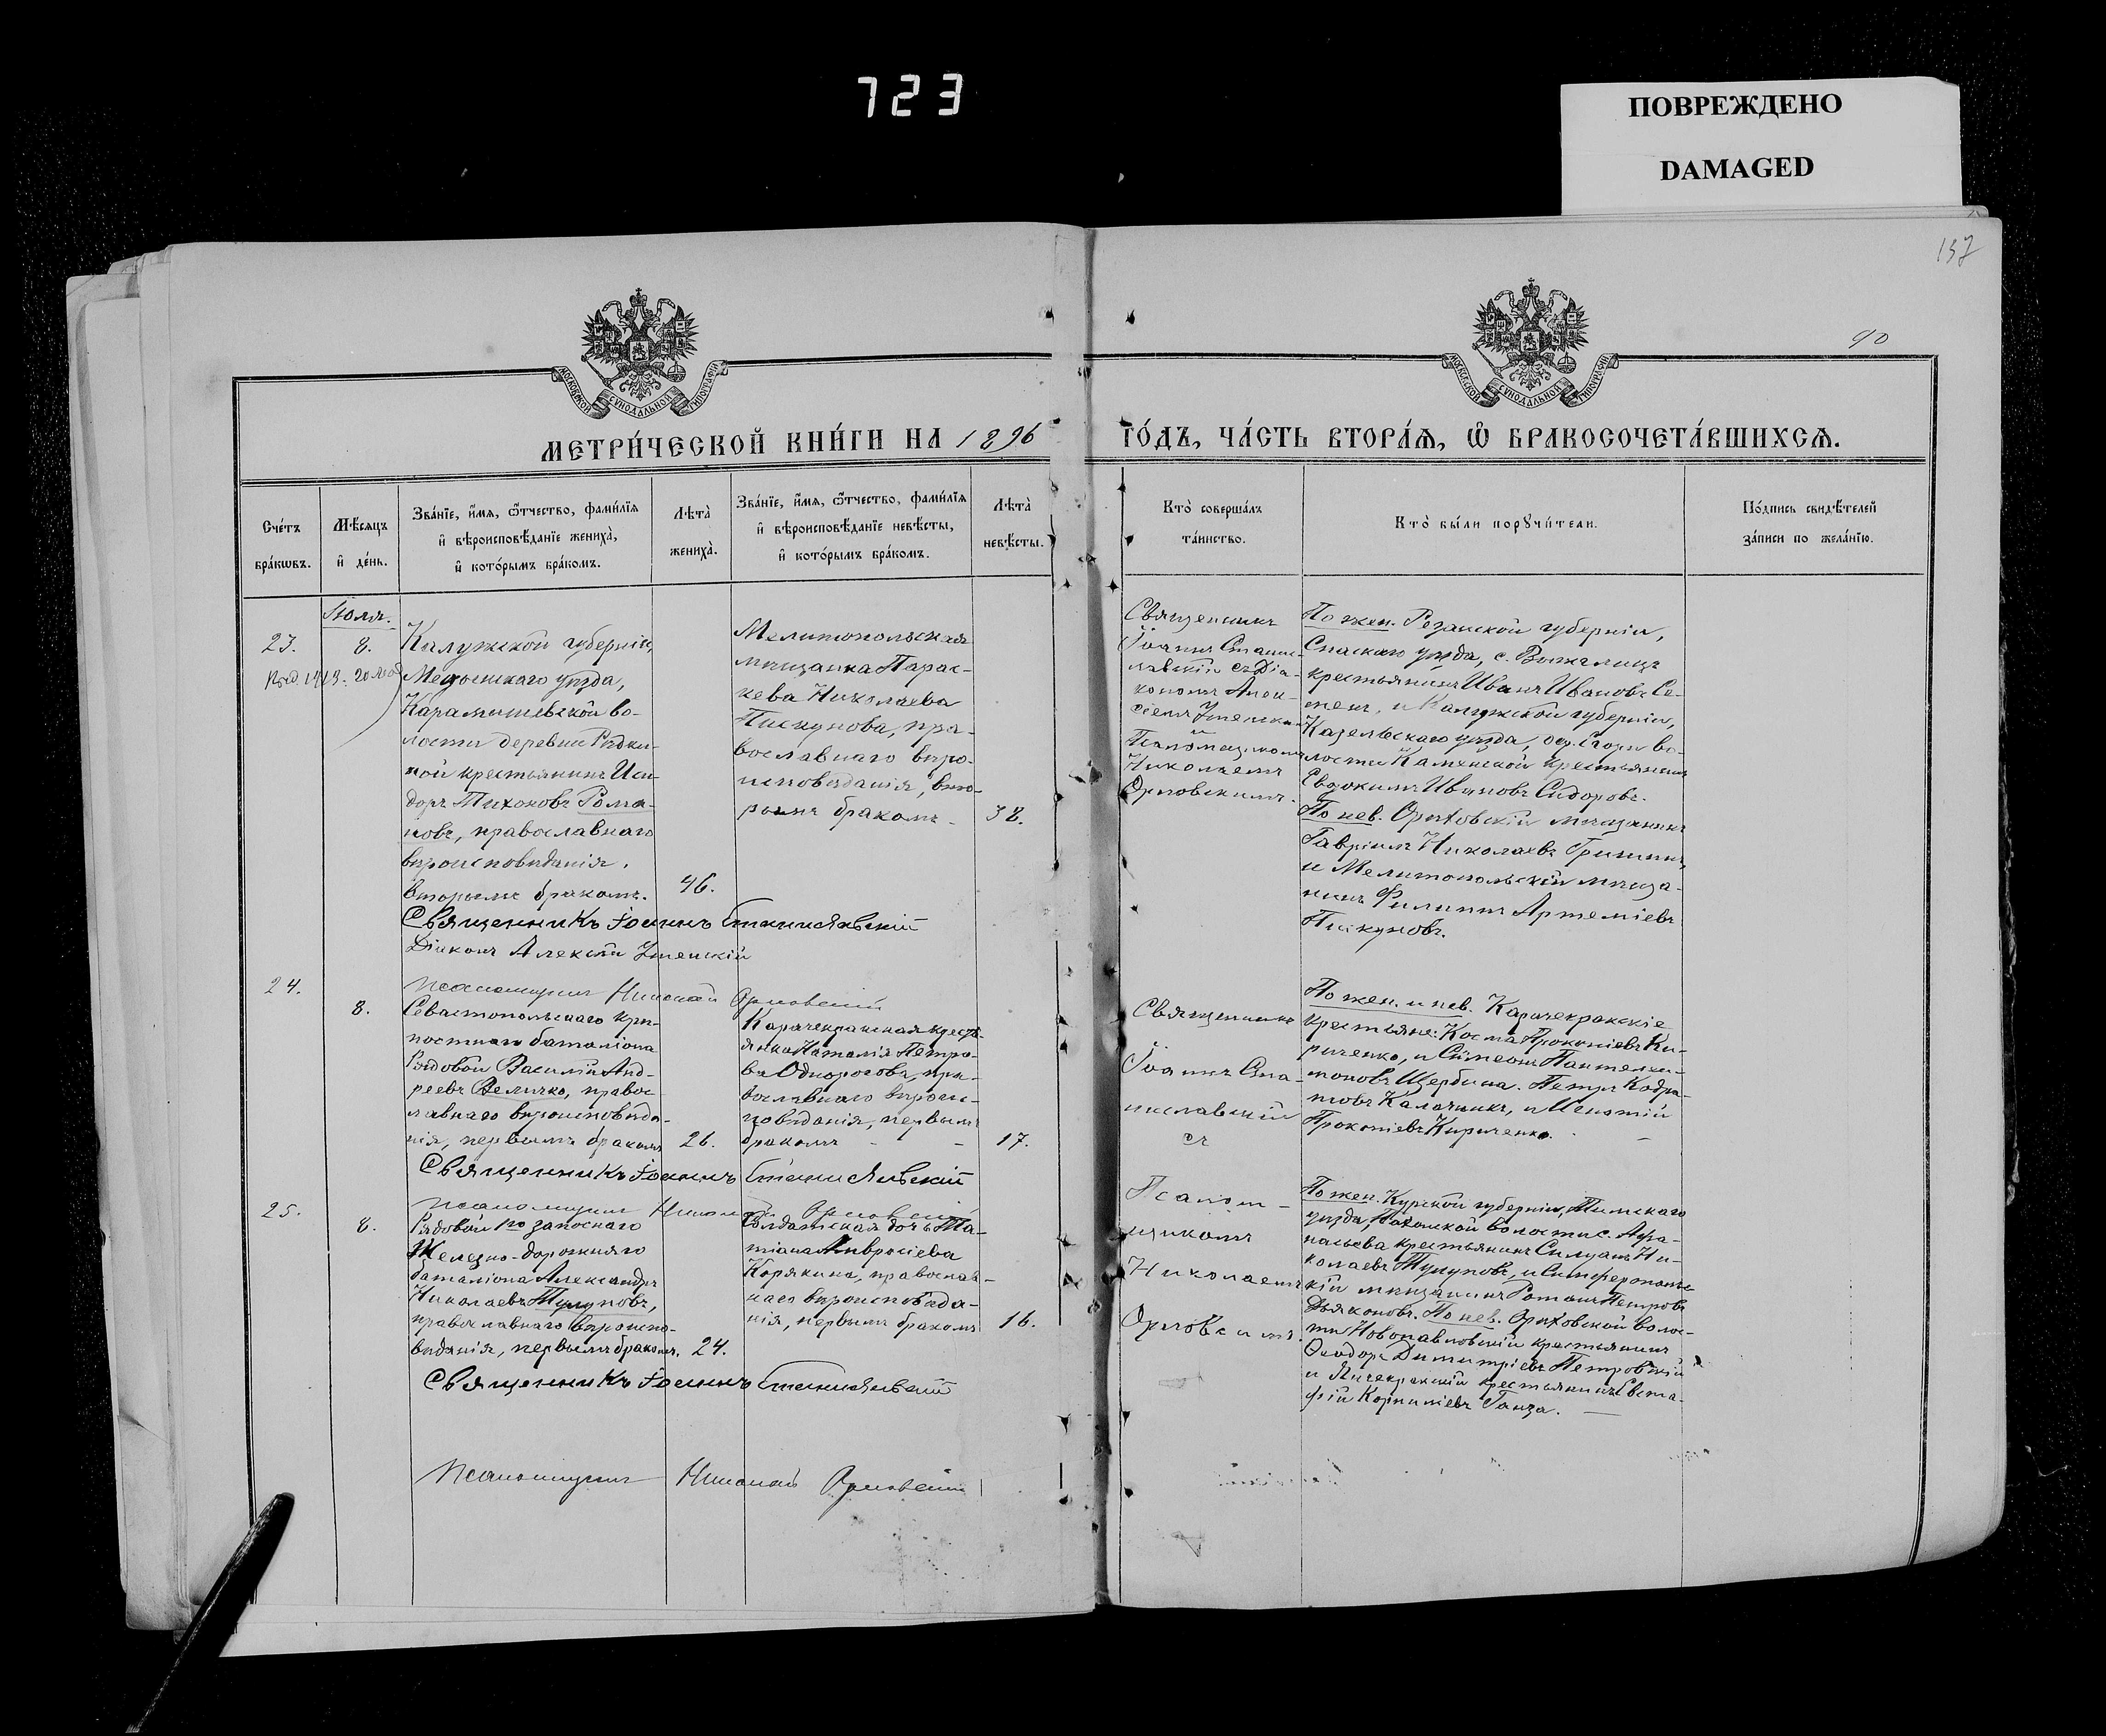 723
ПОВРЕЖДЕНО
DAMAGED
137
90
МОСКОВСКОЙ СѴНОДАЛЬНОЙ ТИПОГРАФІИ
МОСКОВСКОЙ СѴНОДАЛЬНОЙ ТИПОГРАФІИ
МЕТРИ́ЧЕСКОЙ КНИ́ГИ НА 1896
ГО́ДЪ, ЧА́СТЬ ВТОРА́Ѧ, Ѽ БРАКОСОЧЕТА́ВШИХСѦ.
Сче́тъ
бра́кѡвъ.
Мѣ́сѧцъ
и҆ де́нь.
Зва́нїе, и҆́мѧ, ѻ҆́тчество, фами́лїѧ
и҆ вѣроисповѣ́данїе жениха̀,
и҆ кото́рымъ бра́комъ.
Лѣта̀
жениха̀.
Зва́нїе, и҆́мѧ, ѻ҆́тчество, фами́лїѧ
и҆ вѣроисповѣ́данїе невѣ́сты,
и҆ кото́рымъ бра́комъ.
Лѣта̀
невѣ́сты.
Кто̀ соверша́лъ
та́инство.
Кто̀ бы́ли порꙋчи́тели.
По́дпись свидѣ́телей
за́писи по жела́нїю.
Іюля.
23.
8.
Калужской губерніи,
Медынскаго уѣзда,
Карамышевской во-
лости деревни Рѣдки-
ной крестьянинъ Иси-
доръ Тихоновъ Рома-
новъ, православнаго
вѣроисповѣданія,
вторымъ бракомъ.
46.
Мелитопольская
мѣщанка Парас-
кева Николаева
Пискунова, пра-
вославнаго вѣро-
исповѣданія, вто-
рымъ бракомъ -
38.
Священникъ
Іоаннъ Станис-
лавскій съ Діа-
кономъ Алек-
сіемъ
Псаломщикомъ
Николаемъ
Орловскимъ.
По жен. Резанской губерніи,
Спаскаго уѣзда, с.
крестьянинъ Иванъ Ивановъ Се-
, и Калужской губерніи,
Козельскаго уѣзда, дер. во-
лости Каменской крестьянинъ
Евдокимъ Ивановъ Сидоровъ.
По нев. Орѣховскій мѣщанинъ
Гавріилъ Николаевъ Гришинъ,
и Мелитопольскій мѣща-
нинъ Филиппъ Артеміевъ
Пискуновъ.
Священникъ Іоаннъ Станиславскій
Діаконъ Алексій
Псаломщикъ Николай Орловскій
24.
8.
Севастопольскаго крѣ-
постнаго баталіона
Рядовой Василій Анд-
реевъ Величко, правос-
лавнаго вѣроисповѣда-
нія, первымъ бракомъ
26.
Карачекракская кресть-
янка Наталія Петро-
ва Однорогова, пра-
вославнаго вѣроис-
повѣданія, первымъ
бракомъ - -
17.
Священникъ
Іоаннъ Ста-
ниславскій
съ
По жен. и нев. Карачекракскіе
крестьяне: Косма Прокопіевъ Ки-
риченко, и Симеонъ Пантелеи-
моновъ Щербина. Петръ Кодра-
товъ Калачникъ, и Игнатій
Прокопіевъ Кириченко. -
Священникъ Іоаннъ Станиславскій
Псаломщикъ Николай Орловскій
25.
8.
Рядовой 1го запаснаго
Желѣзно-дорожняго
баталіона Александръ
Николаевъ Тулуповъ,
православнаго вѣроиспо-
вѣданія, первымъ бракомъ.
24.
Солдатская дочь Та-
тіана Амвросіева
Корякина, православ-
наго вѣроисповѣда-
нія, первымъ бракомъ
16.
Псалом-
щикомъ
Николаемъ
Орловскимъ.
По жен. Курской губерніи, Тимскаго
уѣзда, волости с. Афа-
насьева крестьянинъ Силуанъ Ни-
колаевъ Тулуповъ, и Симферопольс-
кій мѣщанинъ Романъ Петровъ
Дьяконовъ. По нев. Орѣховской волос-
ти Новопавловскій крестьянинъ
Ѳеодоръ Димитріевъ Петровскій
и Янчекракскій крестьянинъ Евста-
фій Корниліевъ Ганза. -
Священникъ Іоаннъ Станиславскій
Псаломщикъ Николай Орловскій